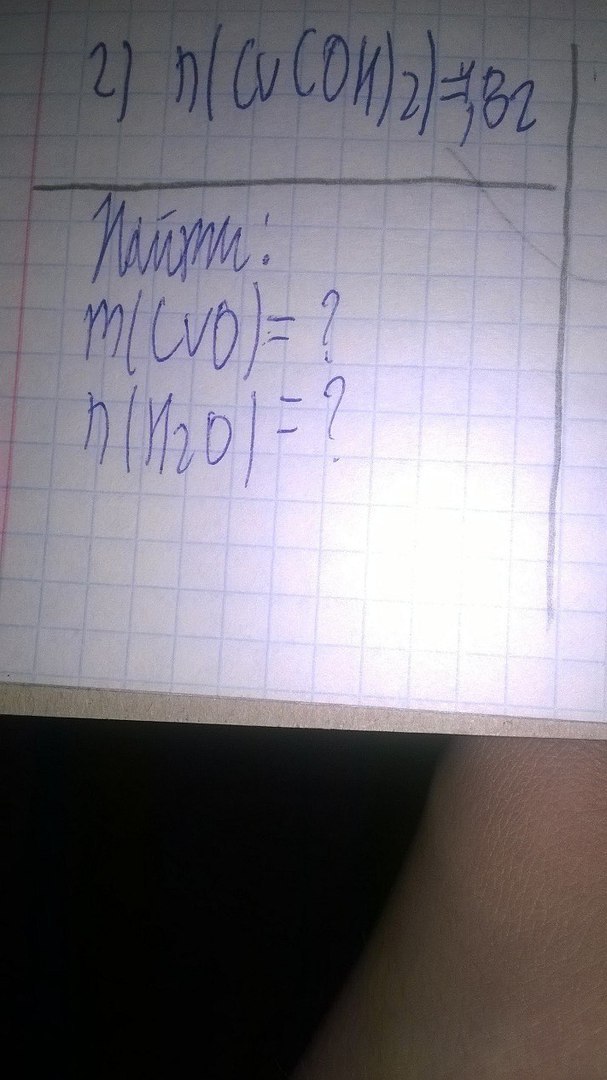 2) n(Cu(OH)2)=4,8г
Найти:
m(CuO)=?
n(H2O)=?